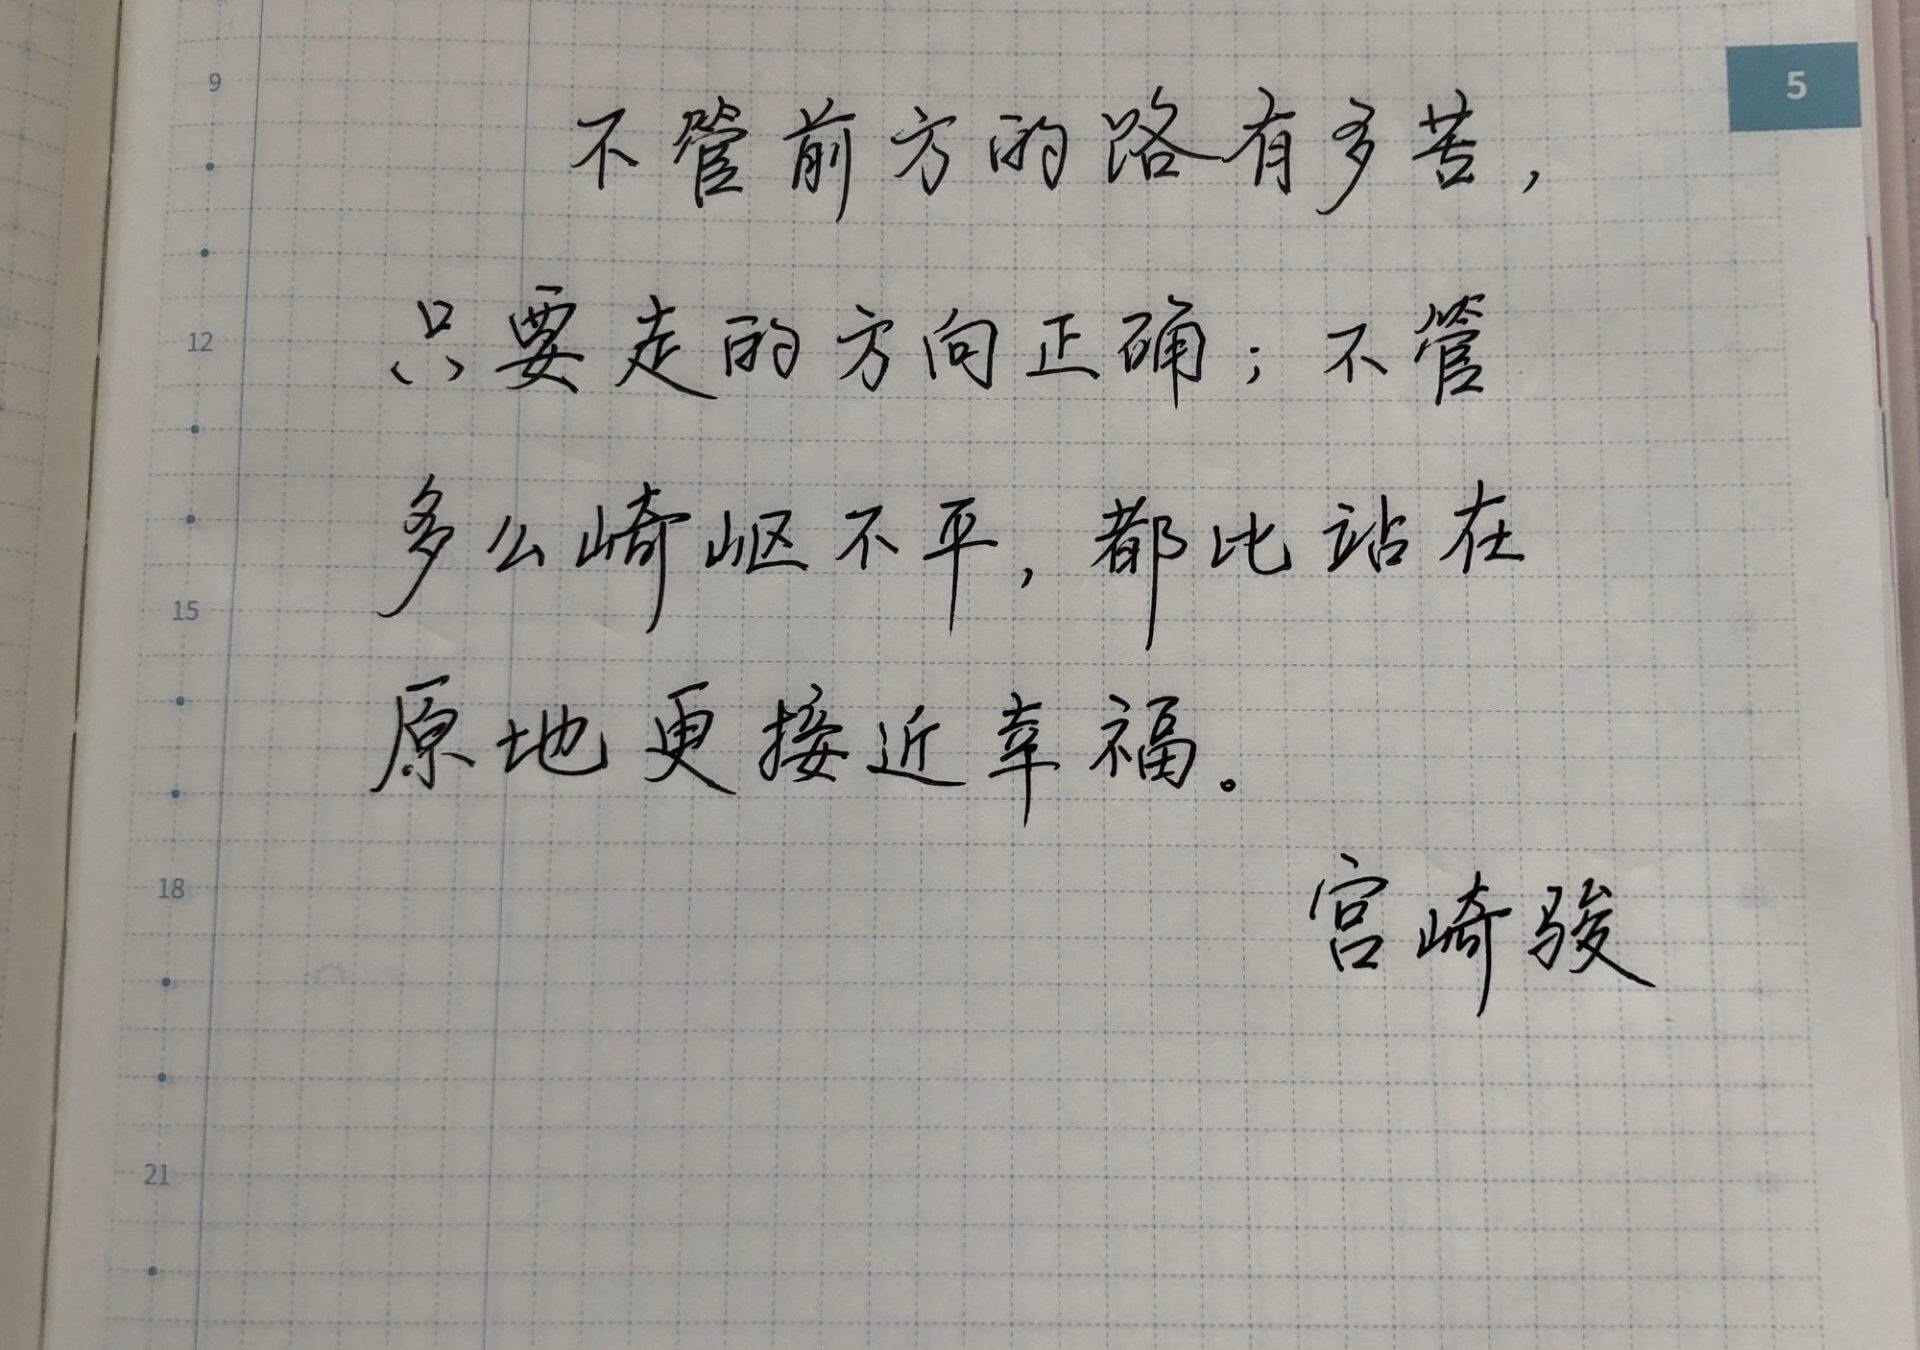 5
9
不管前方的路有多苦,
12
只要走的方向正确;不管
多么崎岖不平,都比站在
15
原地更接近幸福。
18
宫崎骏
21